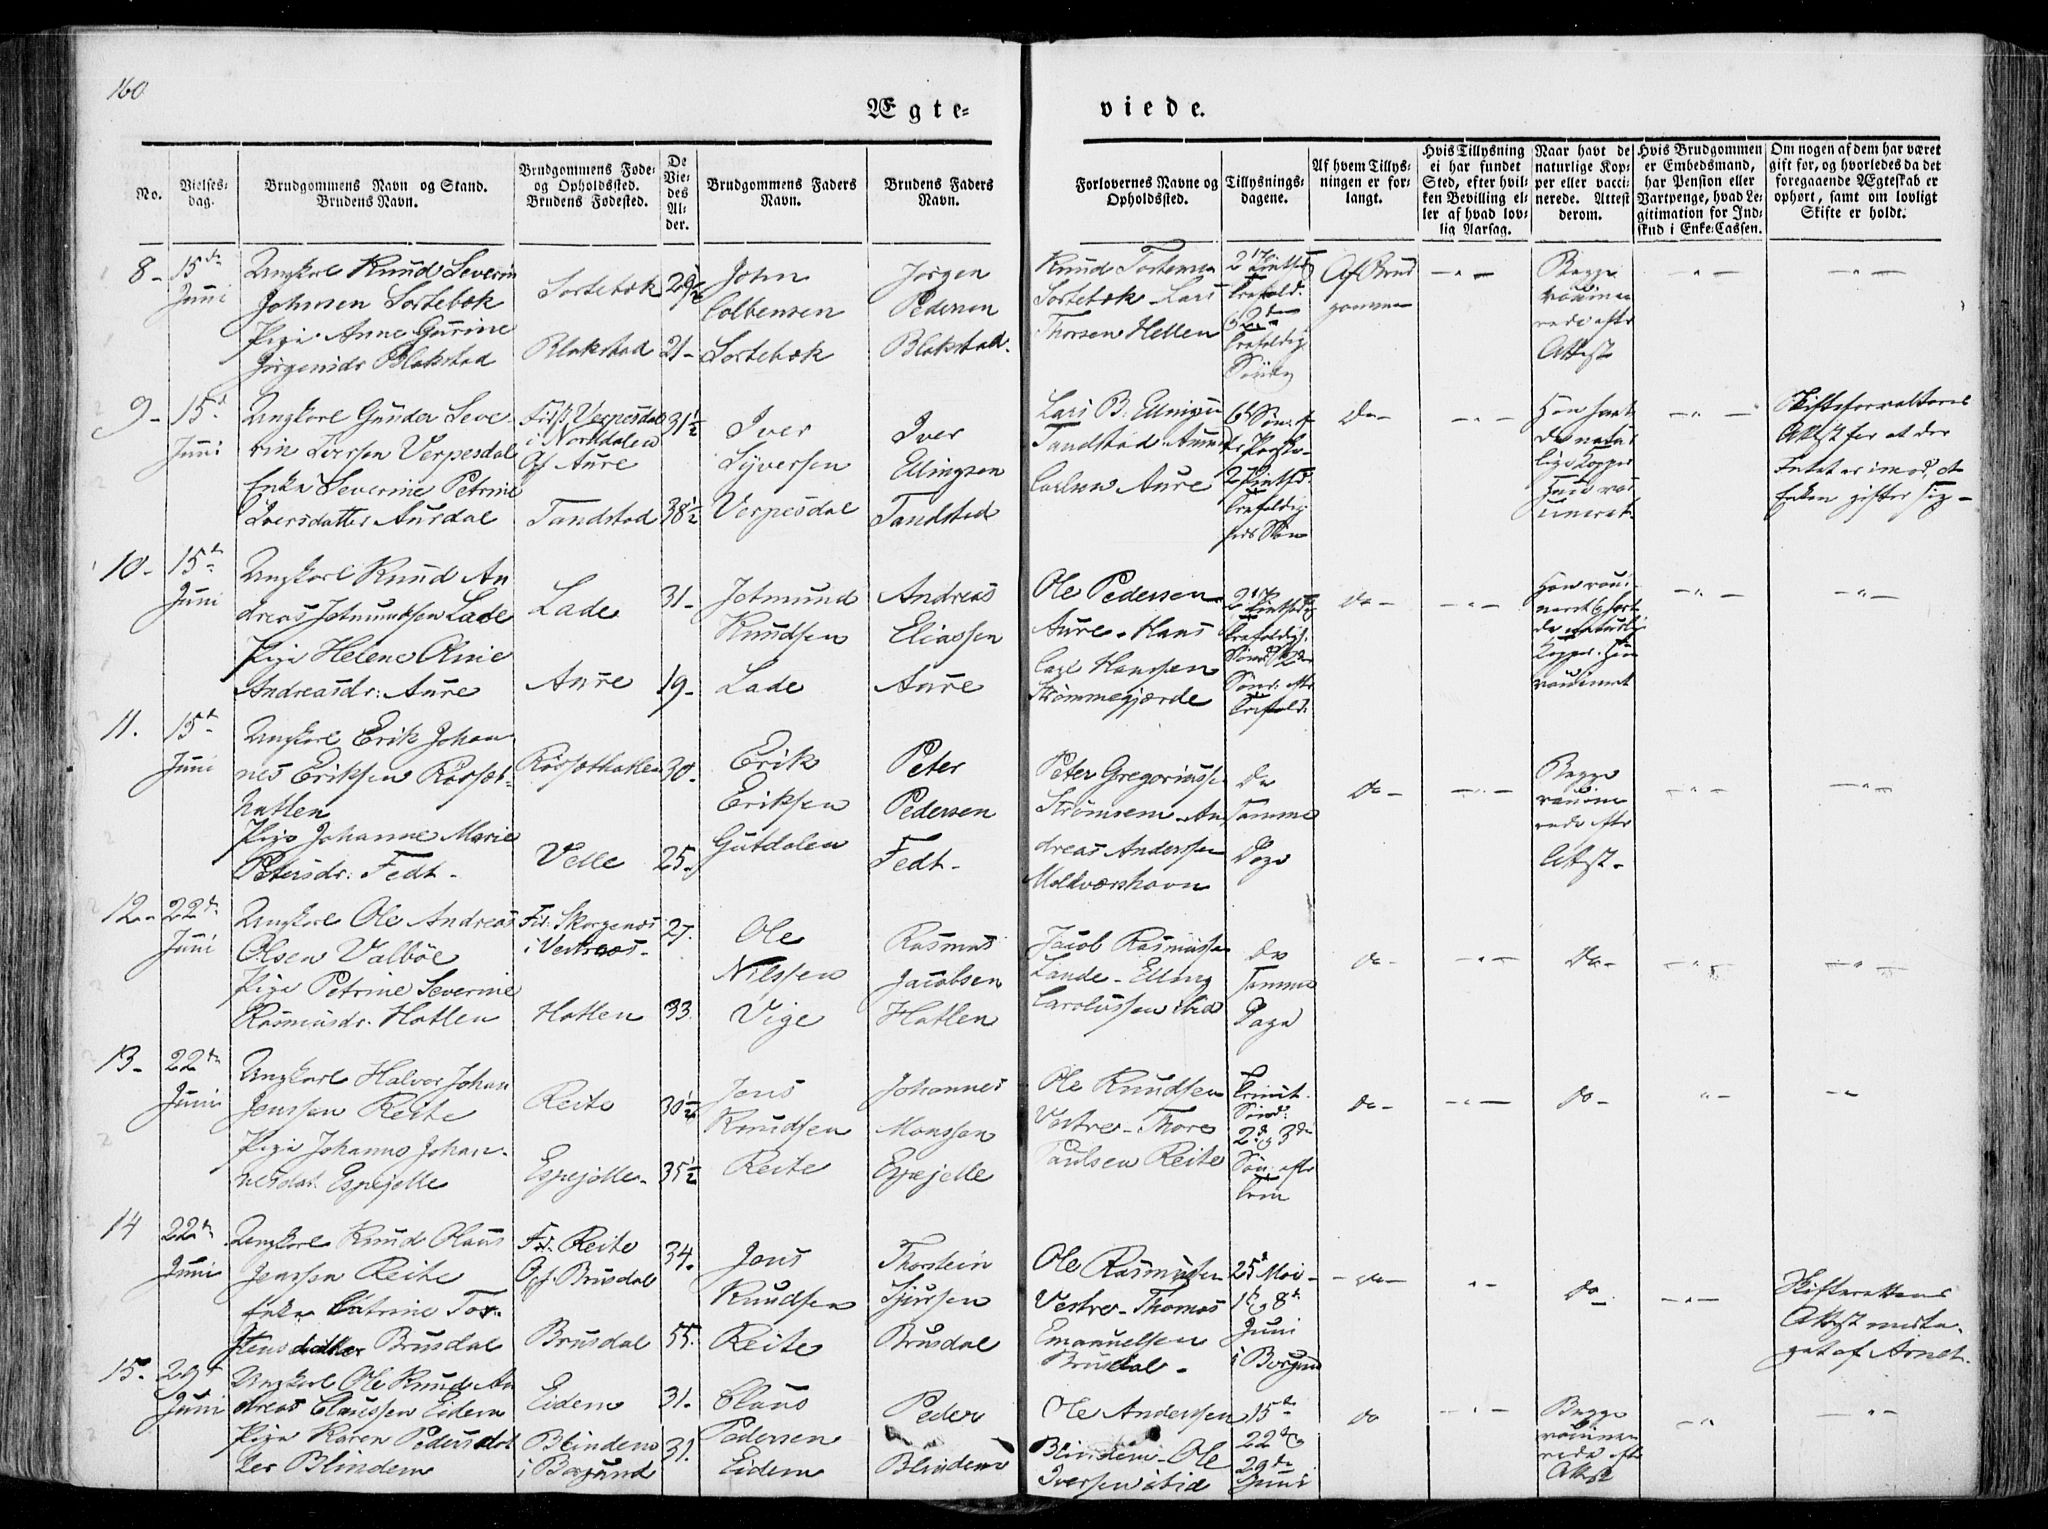 160
Ægte-
viede.
No.
Vielses-
dag.
Brudgommens Navn og Stand.
Brudens Navn.
Brudgommens Føde-
og Opholdssted.
Brudens Fødested.
De
Vie-
des
Al-
der.
Brudgommens Faders
Navn.
Brudens Faders
Navn.
Forlovernes Navne og
Opholdssted.
Tillysnings-
dagene.
Af hvem Tillys-
ningen er for-
langt.
Hvis Tillysning
ei har fundet
Sted, efter hvil-
ken Bevilling el-
ler af hvad lov-
lig Aarsag.
Naar havt de
naturlige Kop-
per eller vacci-
nerede. Attest
derom.
Hvis Brudgommen
er Embedsmand,
har Pension eller
Vartpenge, hvad Le-
gitimation for Ind-
skud i Enke-Cassen.
Om nogen af dem har været
gift før, og hvorledes da det
foregaaende Ægteskab er
ophørt, samt om lovligt
Skifte er holdt.
8-
15de
Juni
Ungkarl Knud Severin
Johnsen Sortebek
Pige Anne Gurine
Jørgensdr Blakstad
Sortebek
Blakstad
21-
John
Colbensen
Sortebek
Jørgen
Pedersen
Blakstad.
Knud Torstensen
Sortebek Lars
Thorsen Hellen
Af Brud
gommen
Begge
vaccine
rede efter
Attest
9-
15d
Juni
Ungkarl Gunder Seve-
rin Iversen Verpesdal
Enke Severine Petrine
Iversdatter Aurdal
Føst. Verpesdal
i Nordalen
Of Aure
Tandstad
31½
38½
Iver
Syversen
Verpesdal
Iver
Ellingsen
Tandstad
Lars B. Ellingsen
Tandstad
Carlsen Aure
Do-
Han havt
de natur
lige Kopper
Hun vac
cineret.
Skifteforvalterens
Attest for at der
Intet er imod, at
Enken gifter sig-
10-
15de
Juni
Ungkarl Knud An
dreas Jetmundsen Lade
Pige Helene Oline
Andreasdr: Aure
Lade
Aure
31-
19-
Jetmund
Knudsen
Lade
Andreas
Eliassen
Aure
Ole Pedersen
Aure. Hans
Carl Hanssen
Strømmegjærde
Do-
11.
15de
Juni
Ungkarl Erik Johan
nes Eriksen Rødset-
hatlen
Pige Johanne Marie
Petersdr: Fedt-
Rødsethatlen
Velle
30-
25.
Erik
Eriksen
Gutdalen
Peter
Pedersen
Fedt-
Peter Gregoriussen
Strømsem. An
dreas Anderssen
Moldværshavn
De
Samme
Dage
Do-
Begge
vaccine
rede efter
Attest-
12.-
22de
Juni
Ungkarl Ole Andreas
Olsen Valbøe
Pige Petrine Severine
Rasmusdr. Hatlen
Fsd: Skorgenæs
i Vestnæs-
Hatlen
27.
33.
Ole
Nilssen
Vige
Rasmus
Jacobsen
Hatlen
Jacob Rasmussen
Lande- Elling
Carolussen ibid
De
Samme
Dage
Do-
Do-
13-
22de
Juni
Ungkarl Halvor Johan
Jenssen Reite
Pige Johanne Johan-
nesdat. Espejelle
Reite
Espejelle-
30½
35½
Jens
Knudsen
Reite
Johannes
Monssen
Espejelle
Ole Knudsen
Vestre- Thore
Paulsen Reite
Trinit.
Sønd:
2d og 3de
Søn. efter
Trin
Do-
Do-
14
22de
Juni
Ungkarl Knud Olaus
Jenssen Reite
Enke Catrine Tor-
stensdatter Brusdal
Fsd. Reite
Opf. Brusdal
Brusdal
34.
55.
Jens
Knudsen
Reite
Thorstein
Sjursen
Brusdal
Ole Rasmussen
Vestre- Thomas
Emanuelsen
Brusdal-
25d Mai-
1st og 8de
Juni
i Borgund
-Do-
Do-
Skifterettens
Attest modta-
get af Arnet.
15.
29d
Juni
Ungkarl Ole Knud An
dreas Claussen Eidem
Pige Karen Pedersdat
ter Blindem
Eidem
Blindem
i Borgund
31.
31.
Claus
Pedersen
Eidem
Peder
Blindem
Ole Anderssen
Blindem- Ole
Iversen ibid
15de
22d og
29de
Juni
Do
Begge
vaccine
rede efter
Attest